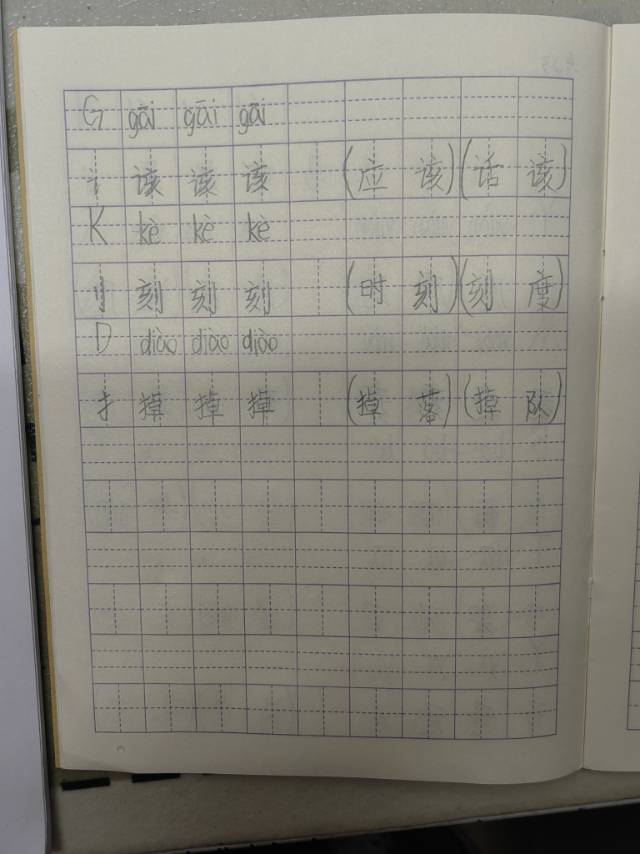 G gāi gāi gāi
讠 该 该 该 (应 该) (话 该)
K kè kè kè
刂 刻 刻 刻 (时 刻) (刻 度)
D diào diào diào
扌 掉 掉 掉 (掉 落) (掉 队)